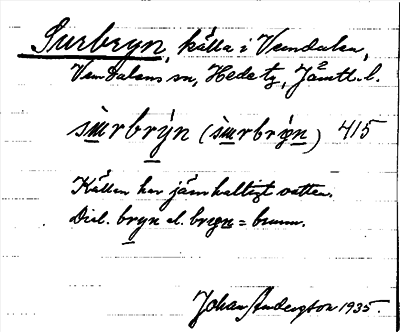 Surbryn, källa i Vemdalen,
Vemdalens sn, Hede tg, Jämtl. l.
sùrbrýn (sùrbrýn) 415
Källan har järnhaltigt vatten.
Dial. bryn el. bryn = brunn.
Johan Andersson 1935.